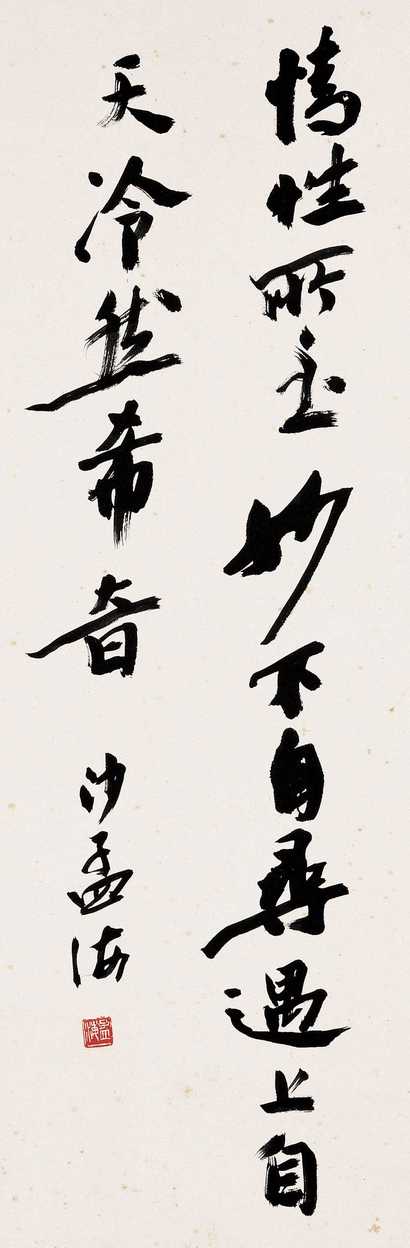 情性所至妙不自尋遇之自
天冷然希音
沙孟海
孟海